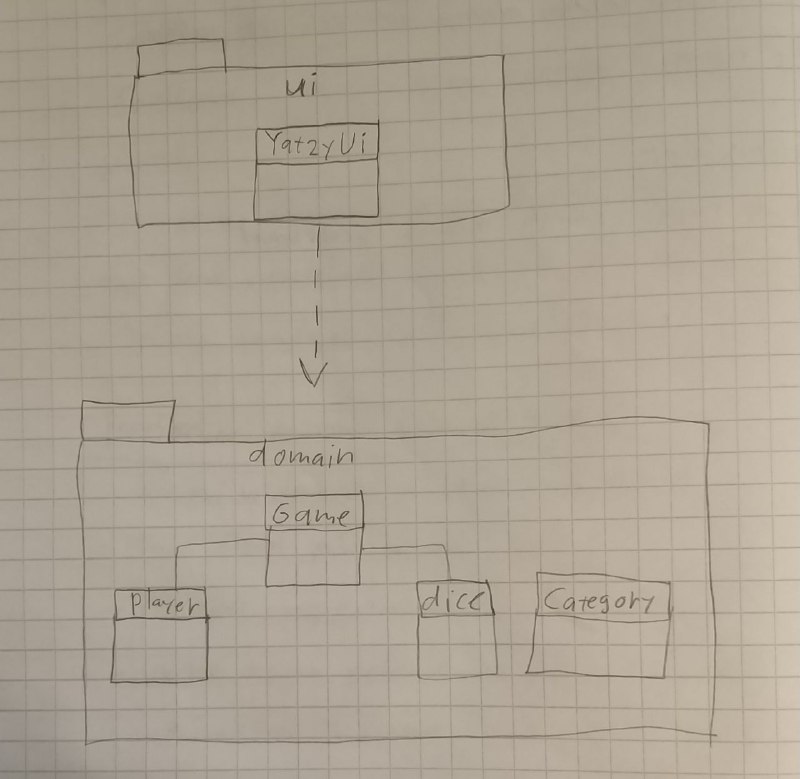 ui
YatzyUi
domain
Game
Player
dice
Category